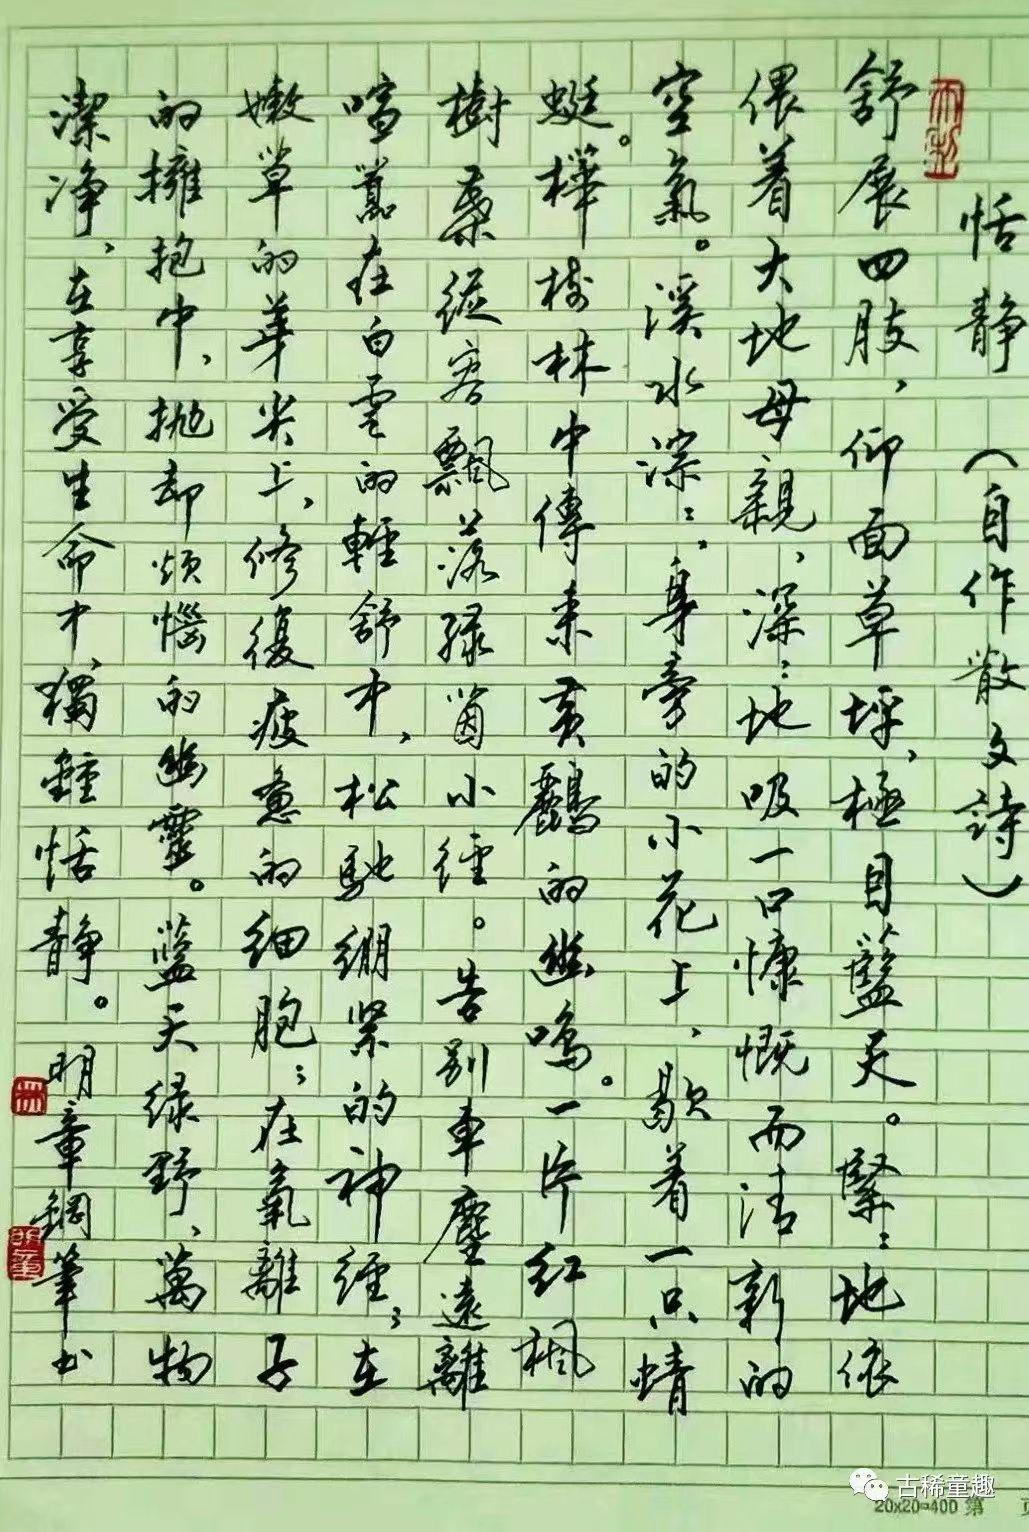 恬静（自作散文詩）
舒展四肢，仰面草坪，極目藍天。緊々地依
偎着大地母親，深々地吸一口慷慨而清新的
空氣。溪水淙々，身旁的小花上，歇着一只蜻
蜓。樺树林中傳来黄鸝的幽鳴。一片红楓
樹葉從容飄落绿茵小徑。告别車塵遠離
喧囂在白雲的輕舒中，松馳绷紧的神經；在
嫩草的芽尖上，修復疲惫的细胞；在氧離子
的擁抱中，抛却烦惱的幽靈。藍天绿野、萬物
潔净，在享受生命中，獨鍾恬静。明章鋼筆书
古稀童趣
20x20=400 第